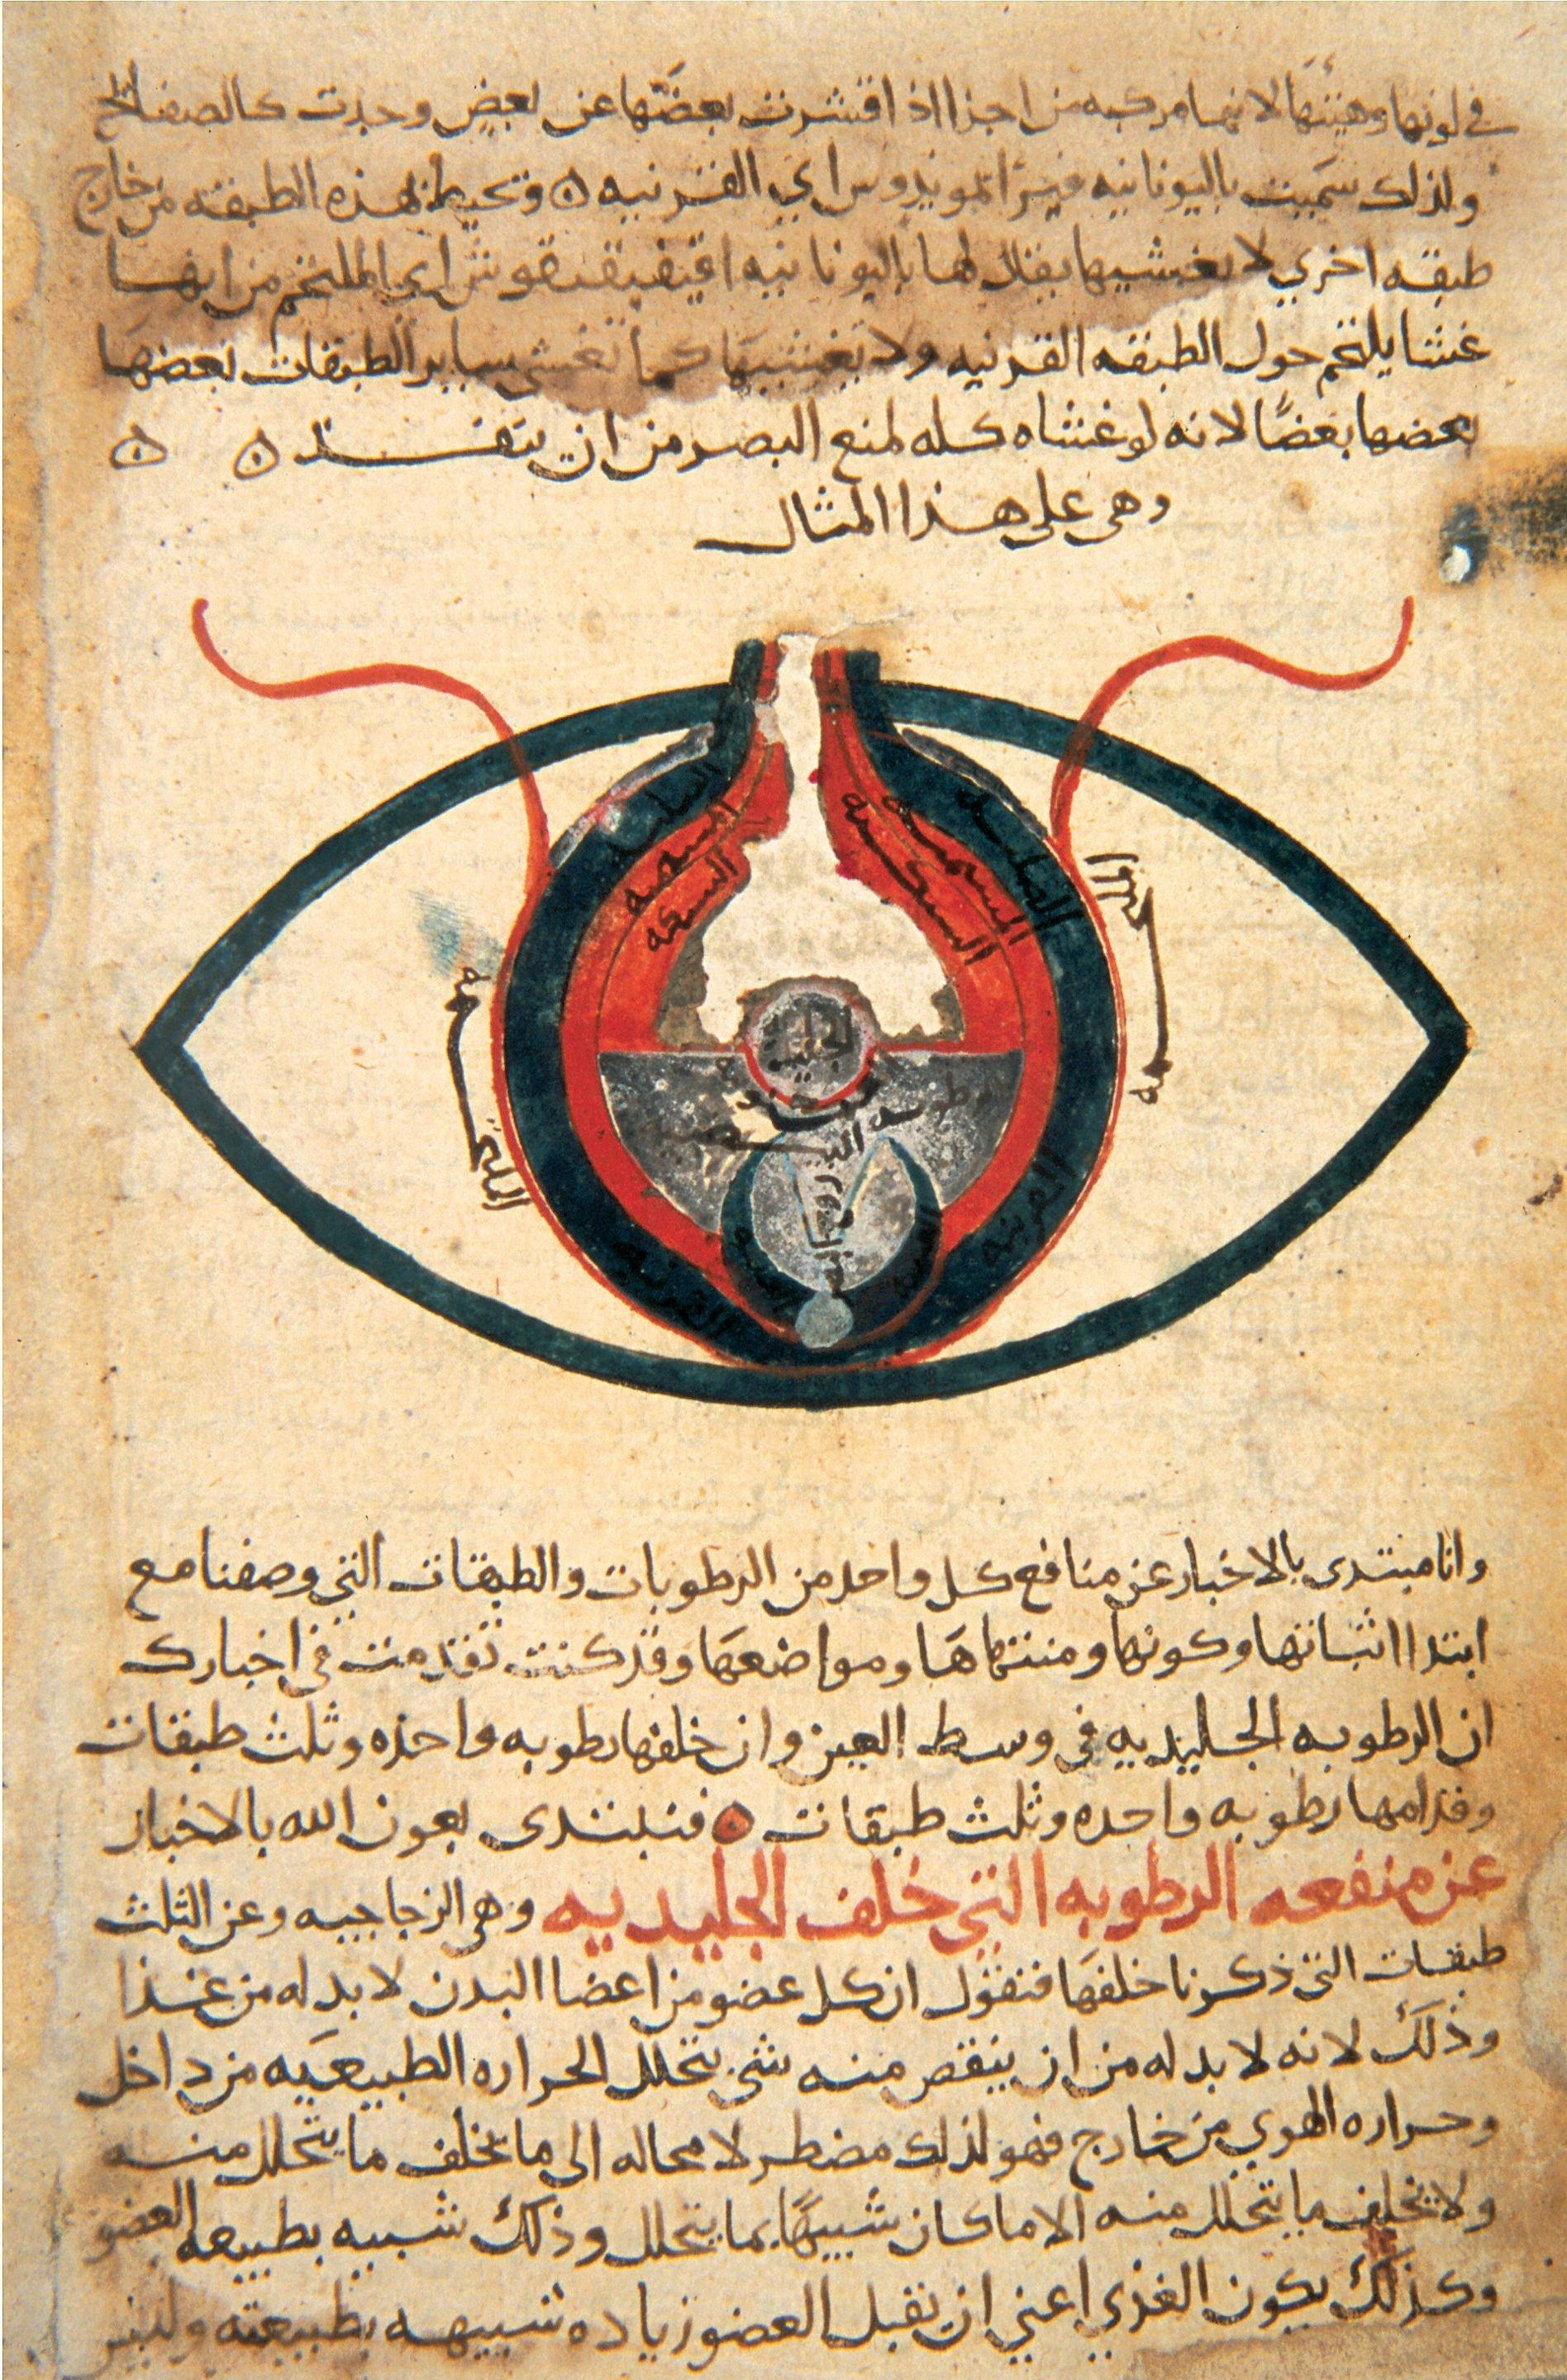 في لونها وهيئتها لانها مركبه من اجزا اذا اقتشرت بعضها عن بعض وجدت كالصفائح
ولذلك سميت باليونانيه اي القرنيه ۞ وتحيط بهذه الطبقه من خارج
طبقه اخري لا تغشيها يقال لها باليونانيه اي الملتحم من انها
غشا يلتحم حول الطبقه القرنيه ولا يغشيها كما تغشي ساير الطبقات بعضها
بعضها بعضًا لانه لو غشاه كله لمنع البصر من ان ينفذ ۞ ۞
وهي على هذا المثال
الصلبه
المشيميه
الشبكيه
الصلبه
المشيميه
الشبكيه
الملتحمه
الملتحمه
الجليديه
الرطوبه
البيضيه
العنبيه
العنبيه
القرنيه
القرنيه
وانا مبتدى بالاخبار عن منافع كل واحد من الرطوبات والطبقات التي وصفنا مع
ابتدا اثباتها وكونها ومنتهاها ومواضعها وقد كنت تقدمت في اخبارك
ان الرطوبه الجليديه في وسط العين وان خلفها رطوبه واحده وثلث طبقات
وقدامها رطوبه واحده وثلث طبقات ۞ فنبتدى بعون الله بالاخبار
عن منفعه الرطوبه التي خلف الجليديه وهي الزجاجيه وعن الثلث
طبقات التي ذكرنا خلفها فنقول ان كل عضو من اعضا البدن لا بد له من غذا
وذلك لانه لا بد له من ان ينقص منه شي بتحلل الحراره الطبيعيه من داخل
وحراره الهوي من خارج فهو لذلك مضطر لا محاله الى ما يخلف ما يتحلل منه
ولا يخلف ما يتحلل منه الا ما كان شبيهًا بما يتحلل وذلك شبيه بطبيعه العضو
وكذلك يكون الغذي اعني ان تقبل العضو زياده شبيهه بطبيعته وليس